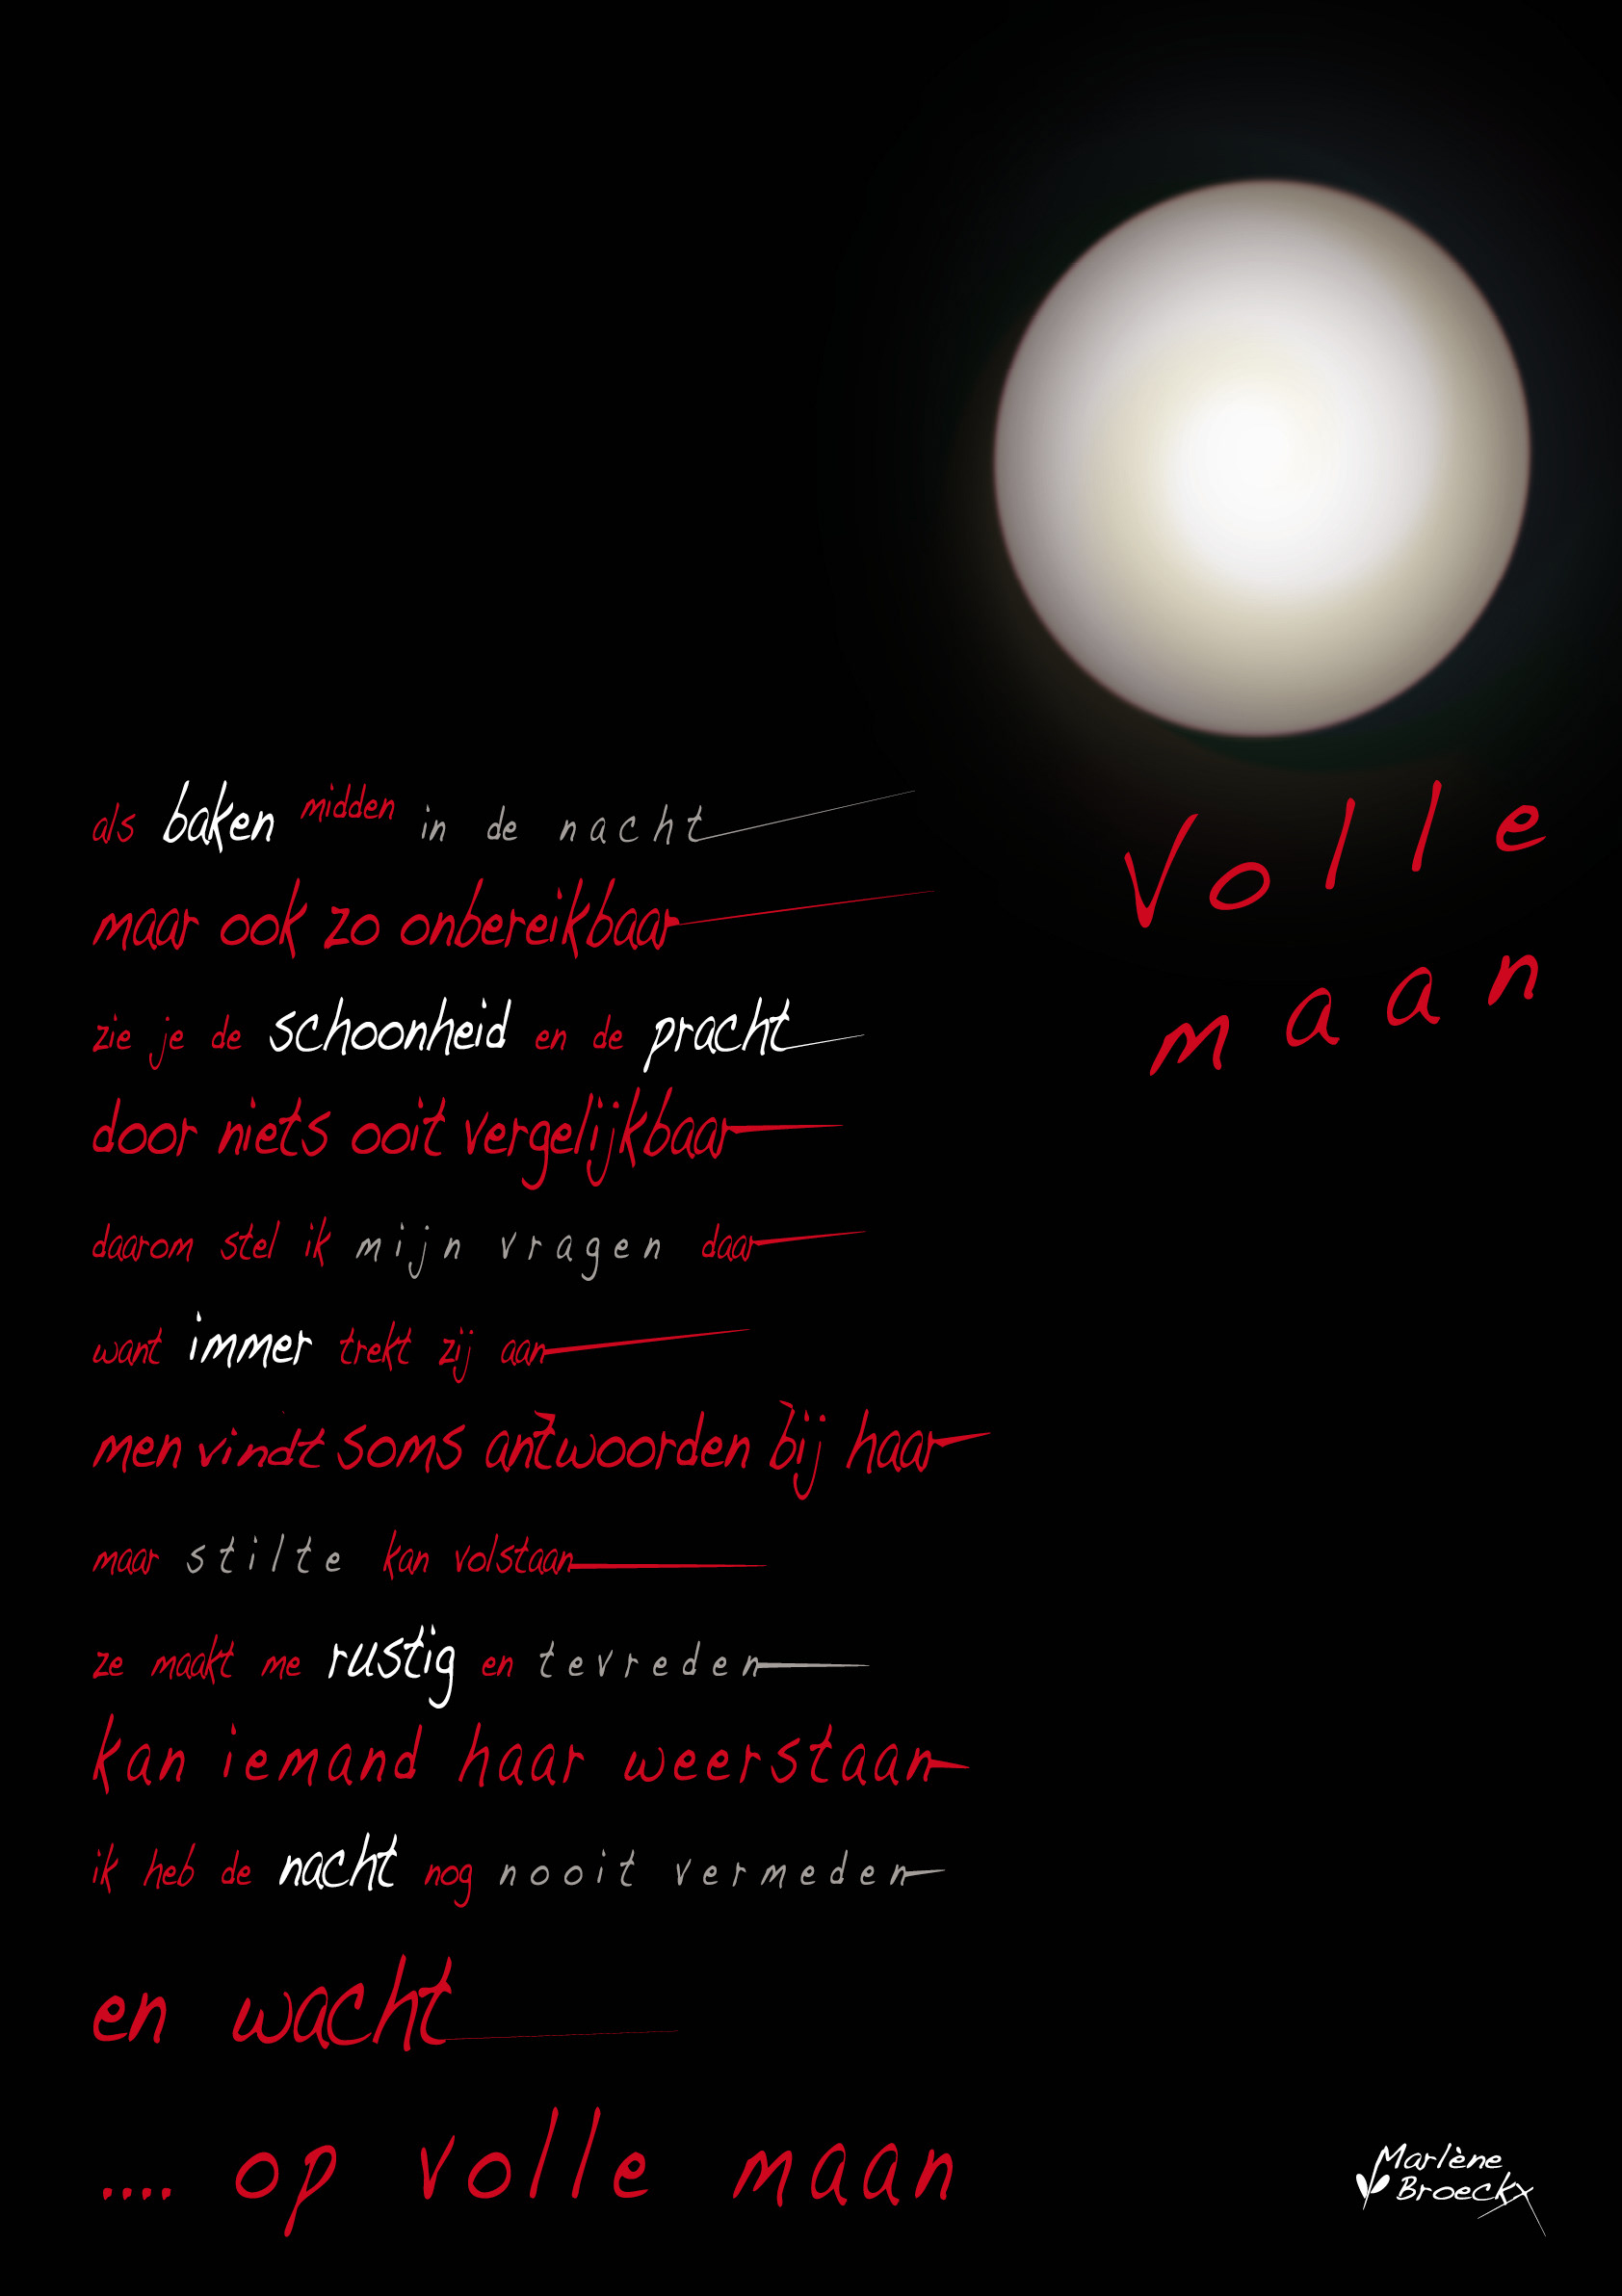 Volle
maan
als baken midden in de nacht
maar ook zo onbereikbaar
zie je de schoonheid en de pracht
door niets ooit vergelijkbaar
daarom stel ik mijn vragen daar
want immer trekt zij aan
men vindt soms antwoorden bij haar
maar stilte kan volstaan
ze maakt me rustig en tevreden
kan iemand haar weerstaan
ik heb de nacht nog nooit vermeden
en wacht
.... op volle maan
Marlène
Broeckx